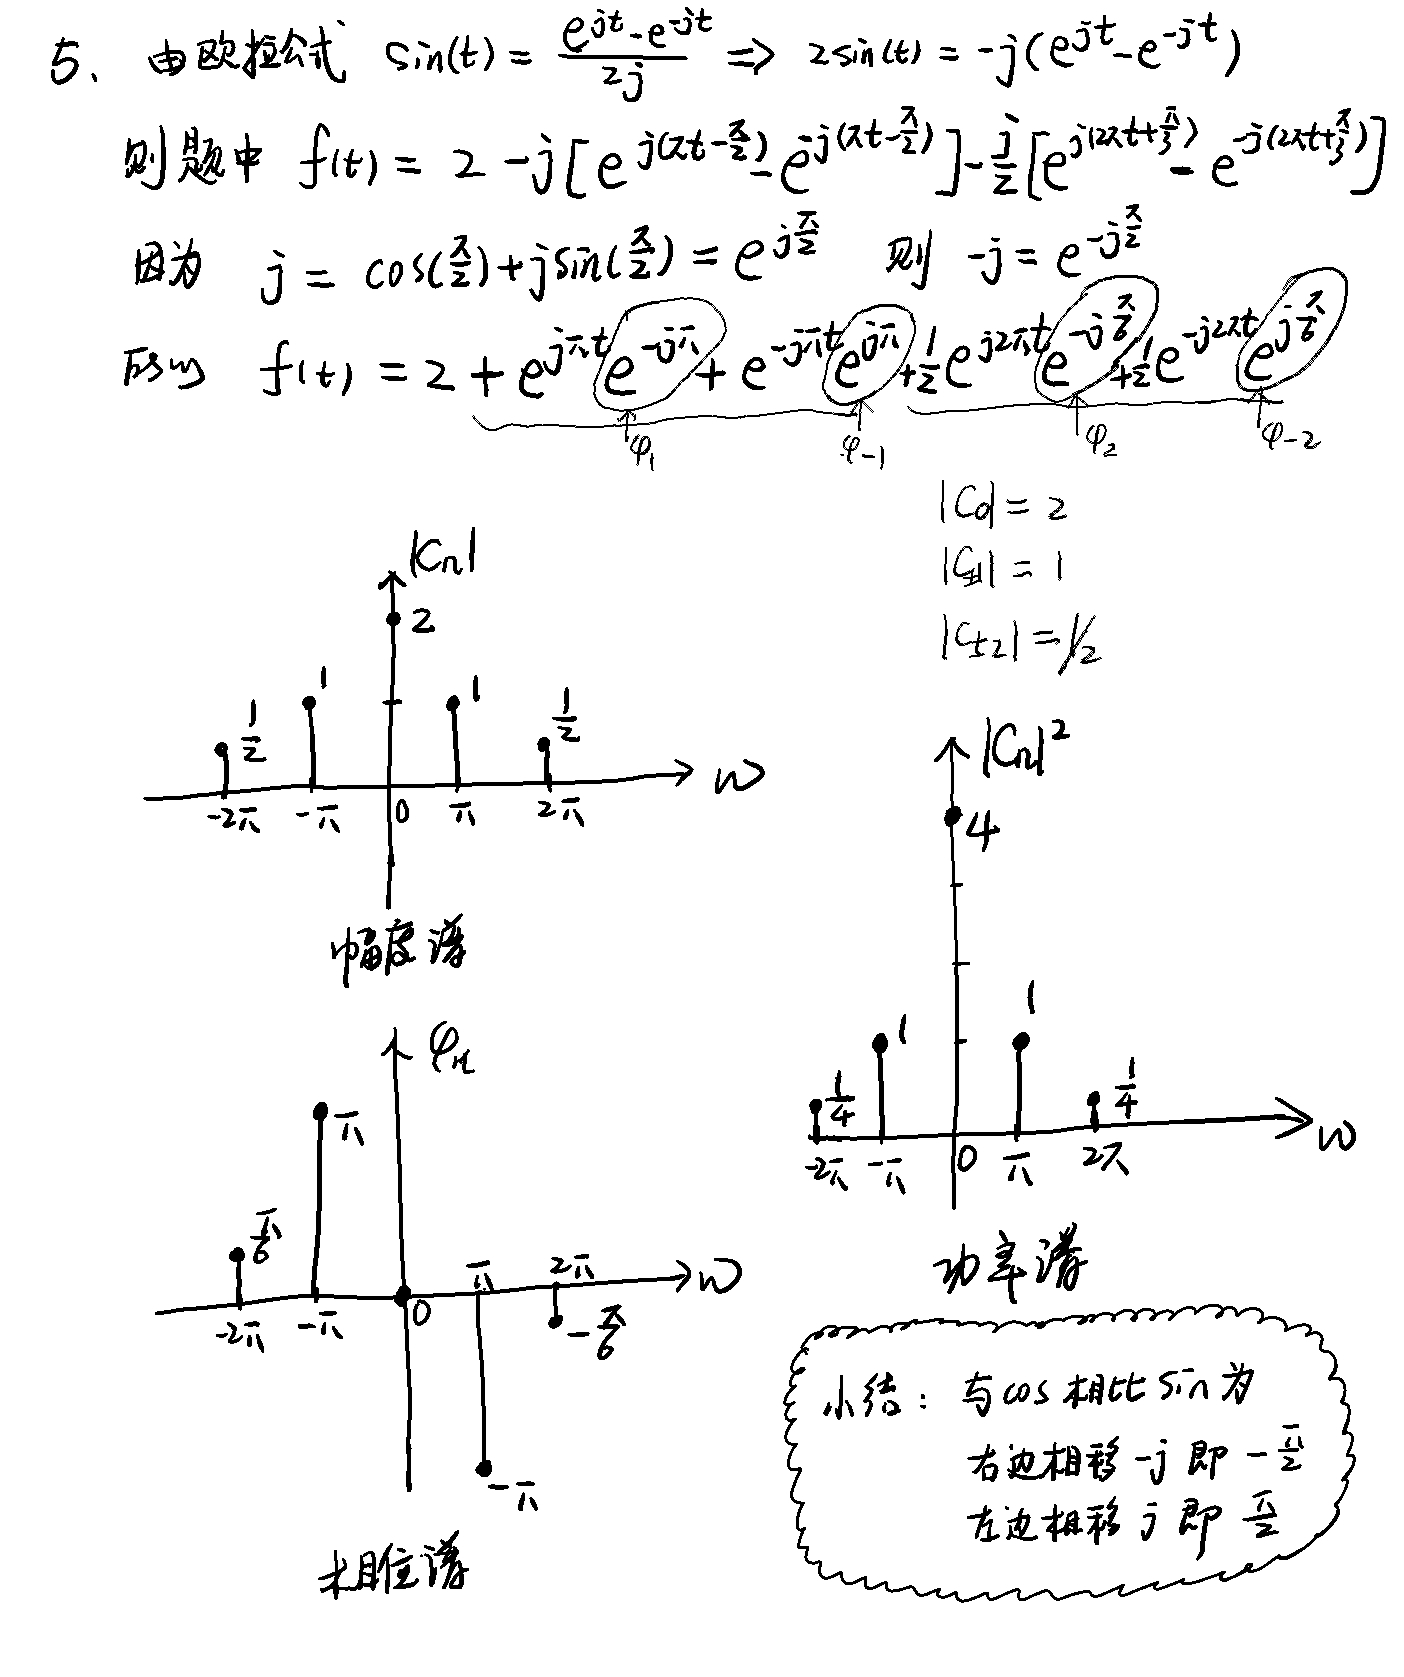 5、由欧拉公式 sin(t) = (e^{jt} - e^{-jt})/2j => 2sin(t) = -j(e^{jt} - e^{-jt})
则题中 f(t) = 2 - j[e^{j(πt-π/2)} - e^{-j(πt-π/2)}] - j/2[e^{j(2πt+π/3)} - e^{-j(2πt+π/3)}]
因为 j = cos(π/2) + jsin(π/2) = e^{jπ/2} 则 -j = e^{-jπ/2}
所以 f(t) = 2 + e^{jπt} e^{-jπ} + e^{-jπt} e^{jπ} + 1/2 e^{j2πt} e^{-jπ/6} + 1/2 e^{-j2πt} e^{jπ/6}
φ_1 φ_{-1} φ_2 φ_{-2}
|C_0| = 2
|C_{±1}| = 1
|C_{±2}| = 1/2
|C_n|
2
1/2 1 1 1/2
ω
-2π -π 0 π 2π
幅度谱
|C_n|^2
4
1/4 1 1 1/4
ω
-2π -π 0 π 2π
功率谱
φ_n
π
π/6
π 2π ω
-2π -π 0
-π/6
-π
相位谱
小结：与cos相比sin为
右边相移 -j 即 -π/2
左边相移 j 即 π/2